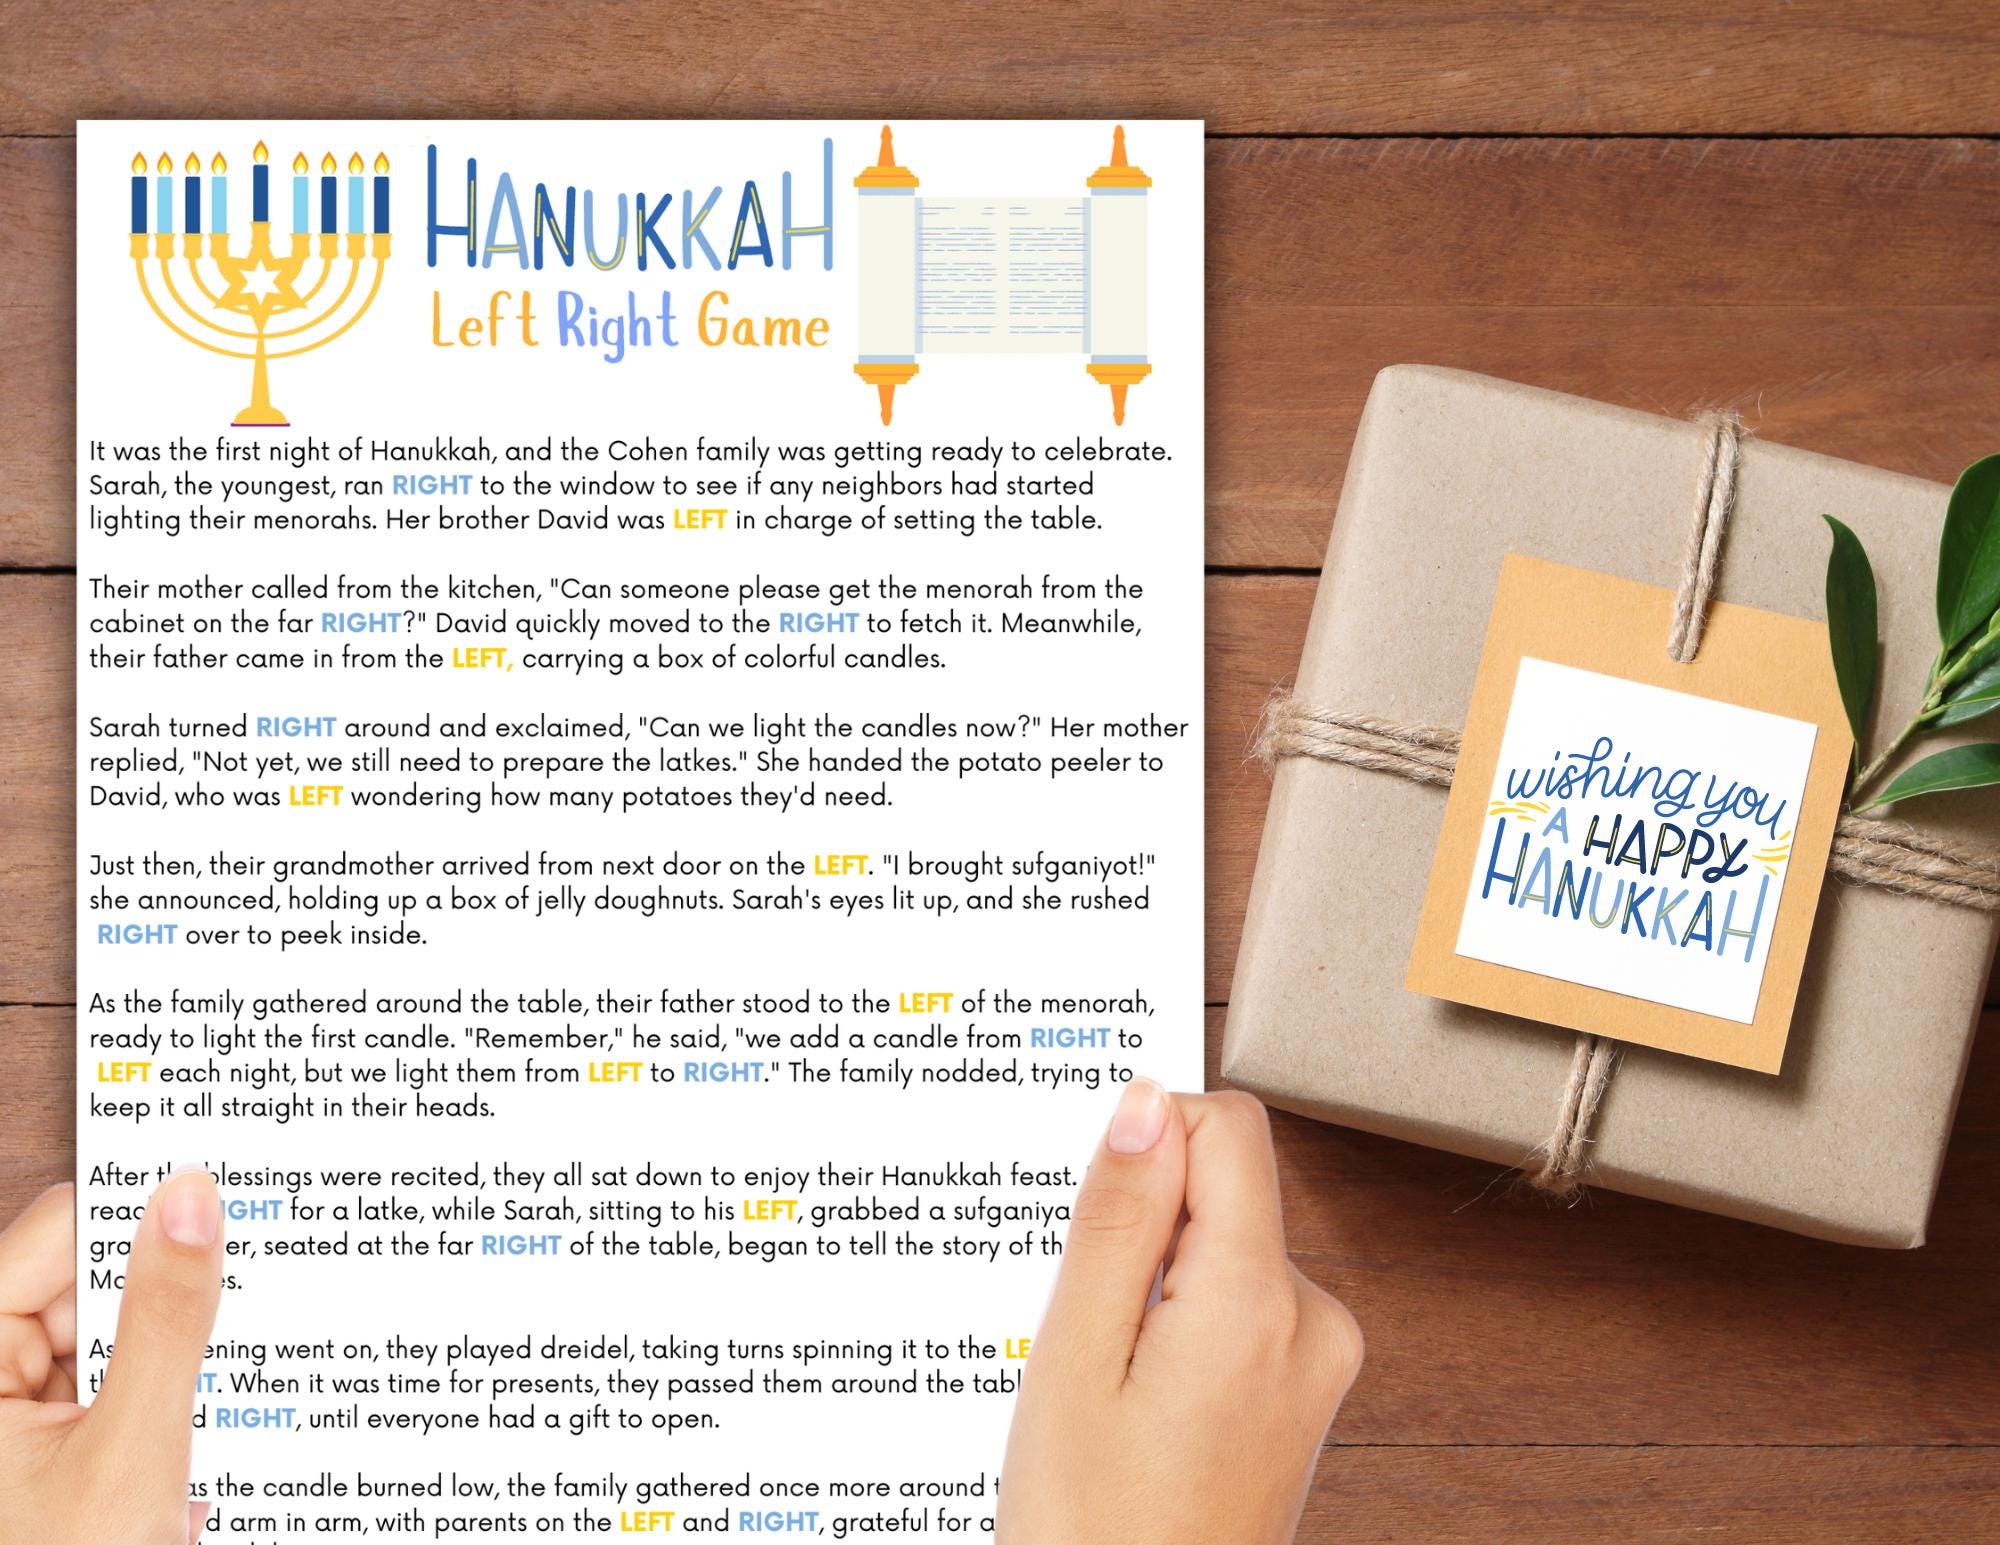 HANUKKAH
Left Right Game
It was the first night of Hanukkah, and the Cohen family was getting ready to celebrate.
Sarah, the youngest, ran RIGHT to the window to see if any neighbors had started
lighting their menorahs. Her brother David was LEFT in charge of setting the table.
Their mother called from the kitchen, "Can someone please get the menorah from the
cabinet on the far RIGHT?" David quickly moved to the RIGHT to fetch it. Meanwhile,
their father came in from the LEFT, carrying a box of colorful candles.
Sarah turned RIGHT around and exclaimed, "Can we light the candles now?" Her mother
replied, "Not yet, we still need to prepare the latkes." She handed the potato peeler to
David, who was LEFT wondering how many potatoes they'd need.
Just then, their grandmother arrived from next door on the LEFT. "I brought sufganiyot!"
she announced, holding up a box of jelly doughnuts. Sarah's eyes lit up, and she rushed
RIGHT over to peek inside.
As the family gathered around the table, their father stood to the LEFT of the menorah,
ready to light the first candle. "Remember," he said, "we add a candle from RIGHT to
LEFT each night, but we light them from LEFT to RIGHT." The family nodded, trying to
keep it all straight in their heads.
After blessings were recited, they all sat down to enjoy their Hanukkah feast.
for a latke, while Sarah, sitting to his LEFT, grabbed a
seated at the far RIGHT of the table, began to tell the story of
As went on, they played dreidel, taking turns spinning it to the
When it was time for presents, they passed them around the
RIGHT, until everyone had a gift to open.
as the candle burned low, the family gathered once more around
arm in arm, with parents on the LEFT and RIGHT, grateful for
wishing you
A HAPPY
HANUKKAH